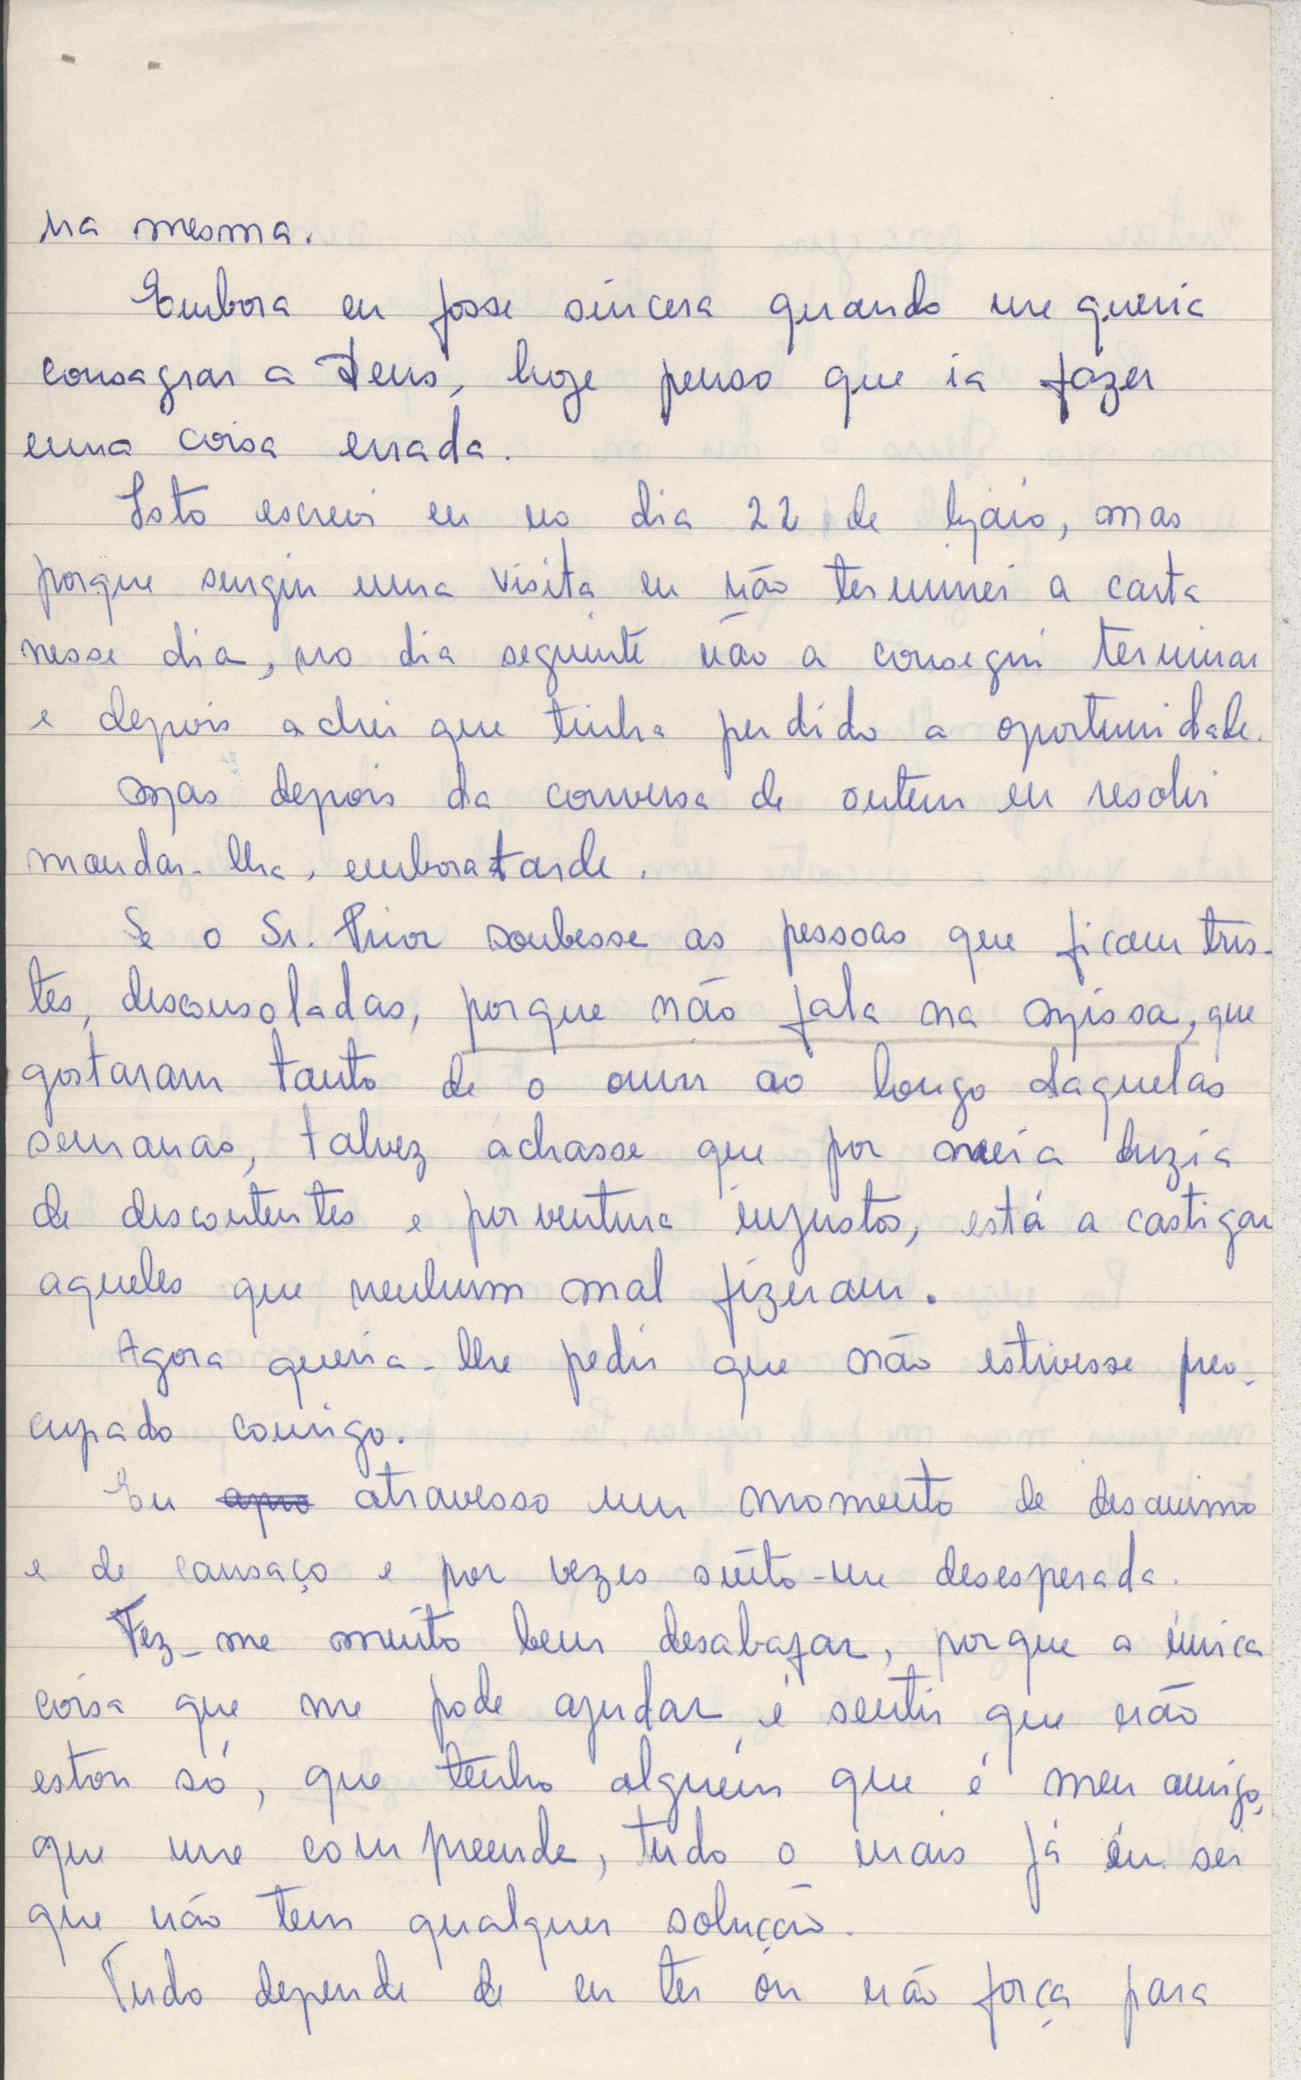 na mesma.
Embora eu fosse sincera quando me queria
consagrar a Deus, hoje penso que ia fazer
uma coisa errada.
Isto escrevi eu no dia 22 de Maio, mas
porque surgiu uma visita eu não terminei a carta
nesse dia, no dia seguinte não a consegui terminar
e depois achei que tinha perdido a oportunidade.
Mas depois da conversa de ontem eu resolvi
mandar-lha, embora tarde.
Se o Sr. Prior soubesse as pessoas que ficam tris-
tes, desconsoladas, porque não fala na Missa, que
gostaram tanto de o ouvir ao longo daquelas
semanas, talvez achasse que por meia duzia
de descontentes e porventura injustos, está a castigar
aqueles que nenhum mal fizeram.
Agora queria-lhe pedir que não estivesse preo-
cupado comigo.
Eu apro atravesso um momento de desanimo
e de cansaço e por vezes sinto-me desesperada.
Fez-me muito bem desabafar, porque a única
coisa que me pode ajudar é sentir que não
estou só, que tenho alguém que é meu amigo,
que me compreende, tudo o mais já eu sei
que não tem qualquer solução.
Tudo depende de eu ter ou não força para